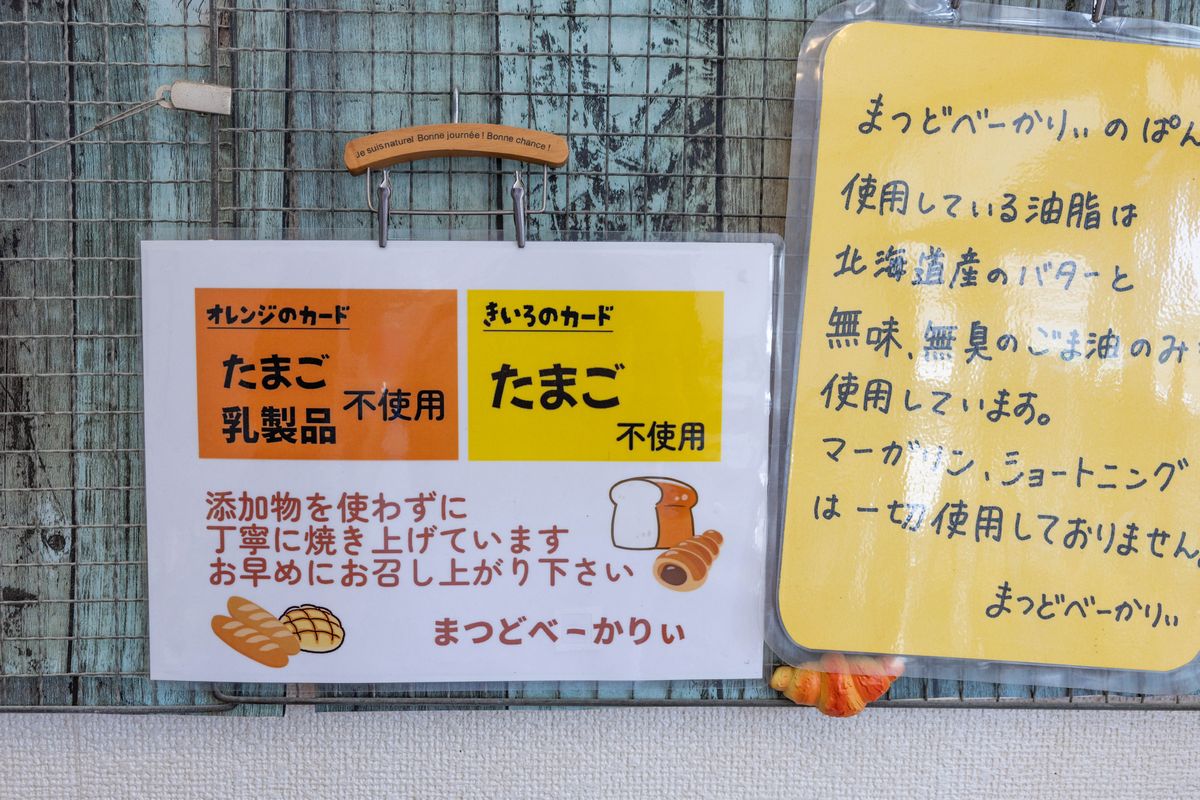 Je suis naturel Bonne journée ! Bonne chance !
オレンジのカード
たまご
乳製品
不使用
きいろのカード
たまご
不使用
添加物を使わずに
丁寧に焼き上げています
お早めにお召し上がり下さい
まつどべーかりぃ
まつどべーかりぃのぱん
使用している油脂は
北海道産のバターと
無味、無臭のごま油のみ
使用しています。
マーガリン、ショートニング
は一切使用しておりません。
まつどべーかりぃ